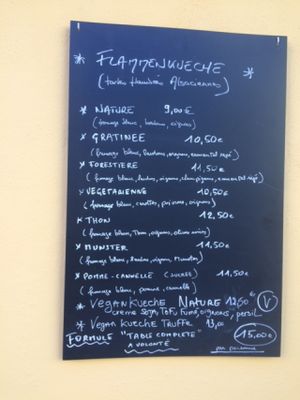 * FLAMMENKUECHE *
(tartes flambées Alsaciennes)
* NATURE 9,00€
(fromage blanc, lardons, oignons)
* GRATINEE 10,50€
(fromage blanc, lardons, oignons, emmental rapé)
* FORESTIERE 11,50€
(fromage blanc, lardons, oignons, champignons, emmental rapé)
* VEGETARIENNE 10,50€
(fromage blanc, carottes, poivrons, oignons)
* THON 12,50€
(fromage blanc, Thon, oignons, olives noires)
* MUNSTER 11,50€
(fromage blanc, lardons, oignons, Munster)
* POMME-CANNELLE (SUCRÉE) 11,50€
(fromage blanc, pomme, cannelle)
* VEGANKUECHE NATURE 12,50 V
creme soja, Tofu fumé, oignons, persil
* VEGAN KUECHE TRUFFE 13,00
FORMULE "TABLE COMPLETE" 15,00€
A VOLONTÉ par personne